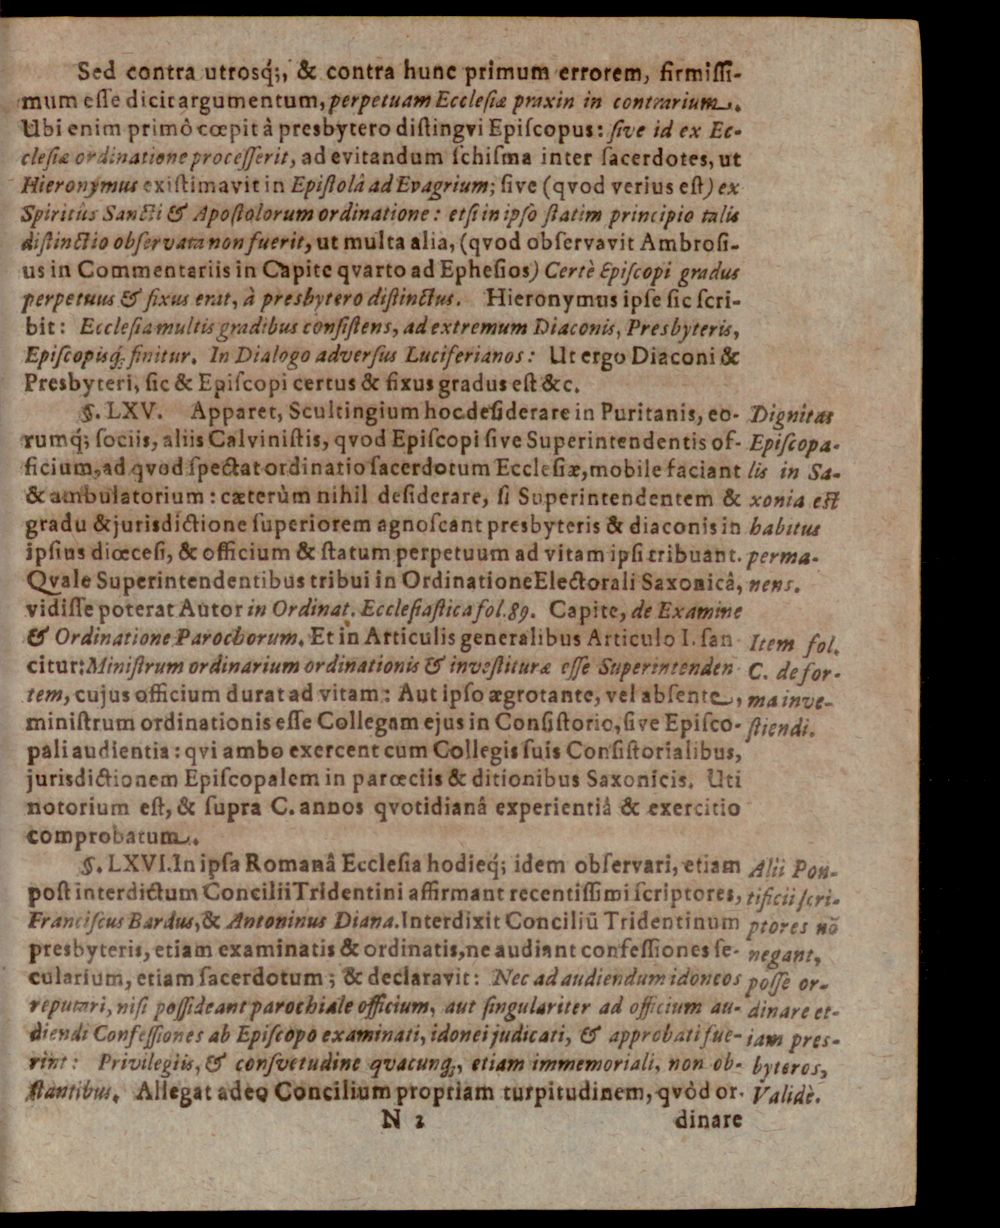 Sed contra utrosq́;, & contra hunc primum errorem, firmiſſi-
mum eſſe dicit argumentum, perpetuam Eccleſiæ praxin in contrarium.
Ubi enim primô cœpit â presbytero diſtingvi Epiſcopus: ſive id ex Ec-
cleſiæ ordinatione proceſſerit, ad evitandum ſchiſma inter ſacerdotes, ut
Hieronymus exiſtimavit in Epiſtolâ ad Evagrium; ſive (qvod verius eſt) ex
Spiritûs Sancti & Apoſtolorum ordinatione: etſi in ipſo ſtatim principio talis
diſtinctio obſervata non fuerit, ut multa alia, (qvod obſervavit Ambroſi-
us in Commentariis in Capite qvarto ad Epheſios) Certè Epiſcopi gradus
perpetuus & fixus erat, à presbytero diſtinctus. Hieronymus ipſe ſic ſcri-
bit: Eccleſia multis gradibus conſiſtens, ad extremum Diaconis, Presbyteris,
Epiſcopisq́; finitur. In Dialogo adverſus Luciferianos: Ut ergo Diaconi &
Presbyteri, ſic & Epiſcopi certus & fixus gradus eſt &c.
§. LXV. Apparet, Scultingium hoc deſiderare in Puritanis, eo-
rumq́; ſociis, aliis Calviniſtis, qvod Epiſcopi ſive Superintendentis of-
ficium, ad qvod ſpectat ordinatio ſacerdotum Eccleſiæ, mobile faciant
& ambulatorium: cæterùm nihil deſiderare, ſi Superintendentem &
gradu & jurisdictione ſuperiorem agnoſcant presbyteris & diaconis in
ipſius diœceſi, & officium & ſtatum perpetuum ad vitam ipſi tribuant.
Qvale Superintendentibus tribui in Ordinatione Electorali Saxonicâ,
vidiſſe poterat Autor in Ordinat. Eccleſiaſtica fol. 89. Capite, de Examine
& Ordinatione Parochorum. Et in Articulis generalibus Articulo I. ſan-
citur: Miniſtrum ordinarium ordinationis & inveſtituræ eſſe Superintenden-
tem, cujus officium durat ad vitam: Aut ipſo ægrotante, vel abſente,
miniſtrum ordinationis eſſe Collegam ejus in Conſiſtorio, ſive Epiſco-
pali audientia: qvi ambo exercent cum Collegis ſuis Conſiſtorialibus,
jurisdictionem Epiſcopalem in parœciis & ditionibus Saxonicis. Uti
notorium eſt, & ſupra C. annos qvotidianâ experientiâ & exercitio
comprobatum.
Dignitas
Epiſcopa-
lis in Sa-
xonia eſt
habitus
perma-
nens.
Item fol.
C. de for-
ma inve-
ſtiendi.
§. LXVI. In ipſa Romanâ Eccleſia hodieq́; idem obſervari, etiam
poſt interdictum Concilii Tridentini affirmant recentiſſimi ſcriptores,
Franciſcus Bardus, & Antoninus Diana. Interdixit Conciliū Tridentinum
presbyteris, etiam examinatis & ordinatis, ne audiant confeſſiones ſe-
cularium, etiam ſacerdotum; & declaravit: Nec ad audiendum idoneos
reputari, niſi poſſideant parochiale officium, aut ſingulariter ad officium au-
diendi Confeſſiones ab Epiſcopo examinati, idonei judicati, & approbati fue-
rint: Privilegiis, & conſvetudine qvacunq́;, etiam immemoriali, non ob-
ſtantibus. Allegat adeo Concilium propriam turpitudinem, qvòd or-
Alii Pon-
tificii ſcri-
ptores nō
negant,
poſſe or-
dinare et-
iam pres-
byteros,
Validè.
N 2
dinare